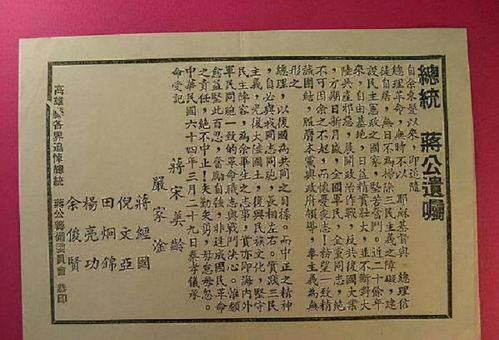 總統 蔣公遺囑
自余束髮以來，即追隨
總理革命，無時不以 耶穌基督與 總理信
徒自居，無日不為掃除三民主義之障礙，建
設民主憲政之國家，堅苦奮鬥。近二十餘年
來，自由基地，日益精實壯大，並不斷對大
陸共產邪惡，展開政治作戰，反共復國大業
，方期日新月盛，全國軍民，全黨同志，絕
不可因余之不起，而懷憂喪志！務望一致精
誠團結，服膺本黨與政府領導，奉主義為無
形之
總理，以復國為共同之目標。而中正之精神
，自必與我同志同胞，長相左右。實踐三民
主義，光復大陸國土，復興民族文化，堅守
民主陣容，為余畢生之志事，實亦即海內外
軍民同胞一致的革命職志與戰鬥決心。惟願
愈益堅此百忍，奮勵自強，非達成國民革命
之責任，絕不中止！矢勤矢勇，毋怠毋忽。
中華民國六十四年三月二十九日秦孝儀承
命受記
蔣宋美齡
嚴家淦
蔣經國
倪文亞
田炯錦
楊亮功
余俊賢
高雄縣各界追悼總統 蔣公籌備委員會 恭印